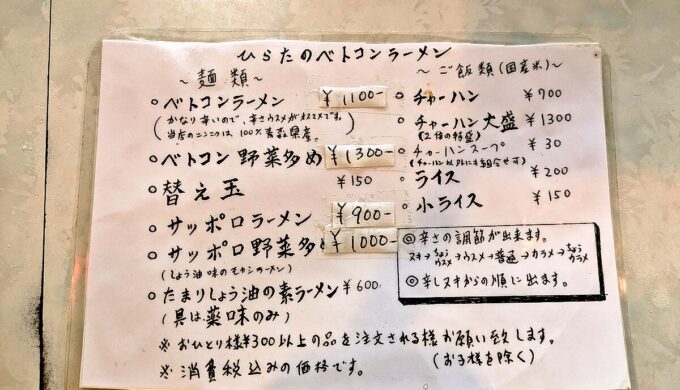 ひらたのベトコンラーメン
～麺類～
○ベトコンラーメン ¥1100-
(かなり辛いので、辛さウスメがオススメです。
当店のニンニクは、100%青森県産。)
○ベトコン野菜多め ¥1300-
○替え玉 ¥150
○サッポロラーメン ¥900-
○サッポロ野菜多 ¥1000-
(しょう油味のモヤシラーメン)
○たまりしょう油の素ラーメン ¥600
(具は薬味のみ)
～ご飯類(国産米)～
○チャーハン ¥700
○チャーハン大盛 ¥1300
(2倍の特盛)
○チャーハンスープ ¥30
(チャーハン以外にも組合せ可)
○ライス ¥200
○小ライス ¥150
◎辛さの調節が出来ます。
ヌキ→ちょうウスメ→ウスメ→普通→カラメ→ちょうカラメ
◎辛しヌキからの順に出ます。
※おひとり様¥300以上の品を注文される様お願い致します。
(お子様を除く)
※消費税込みの価格です。